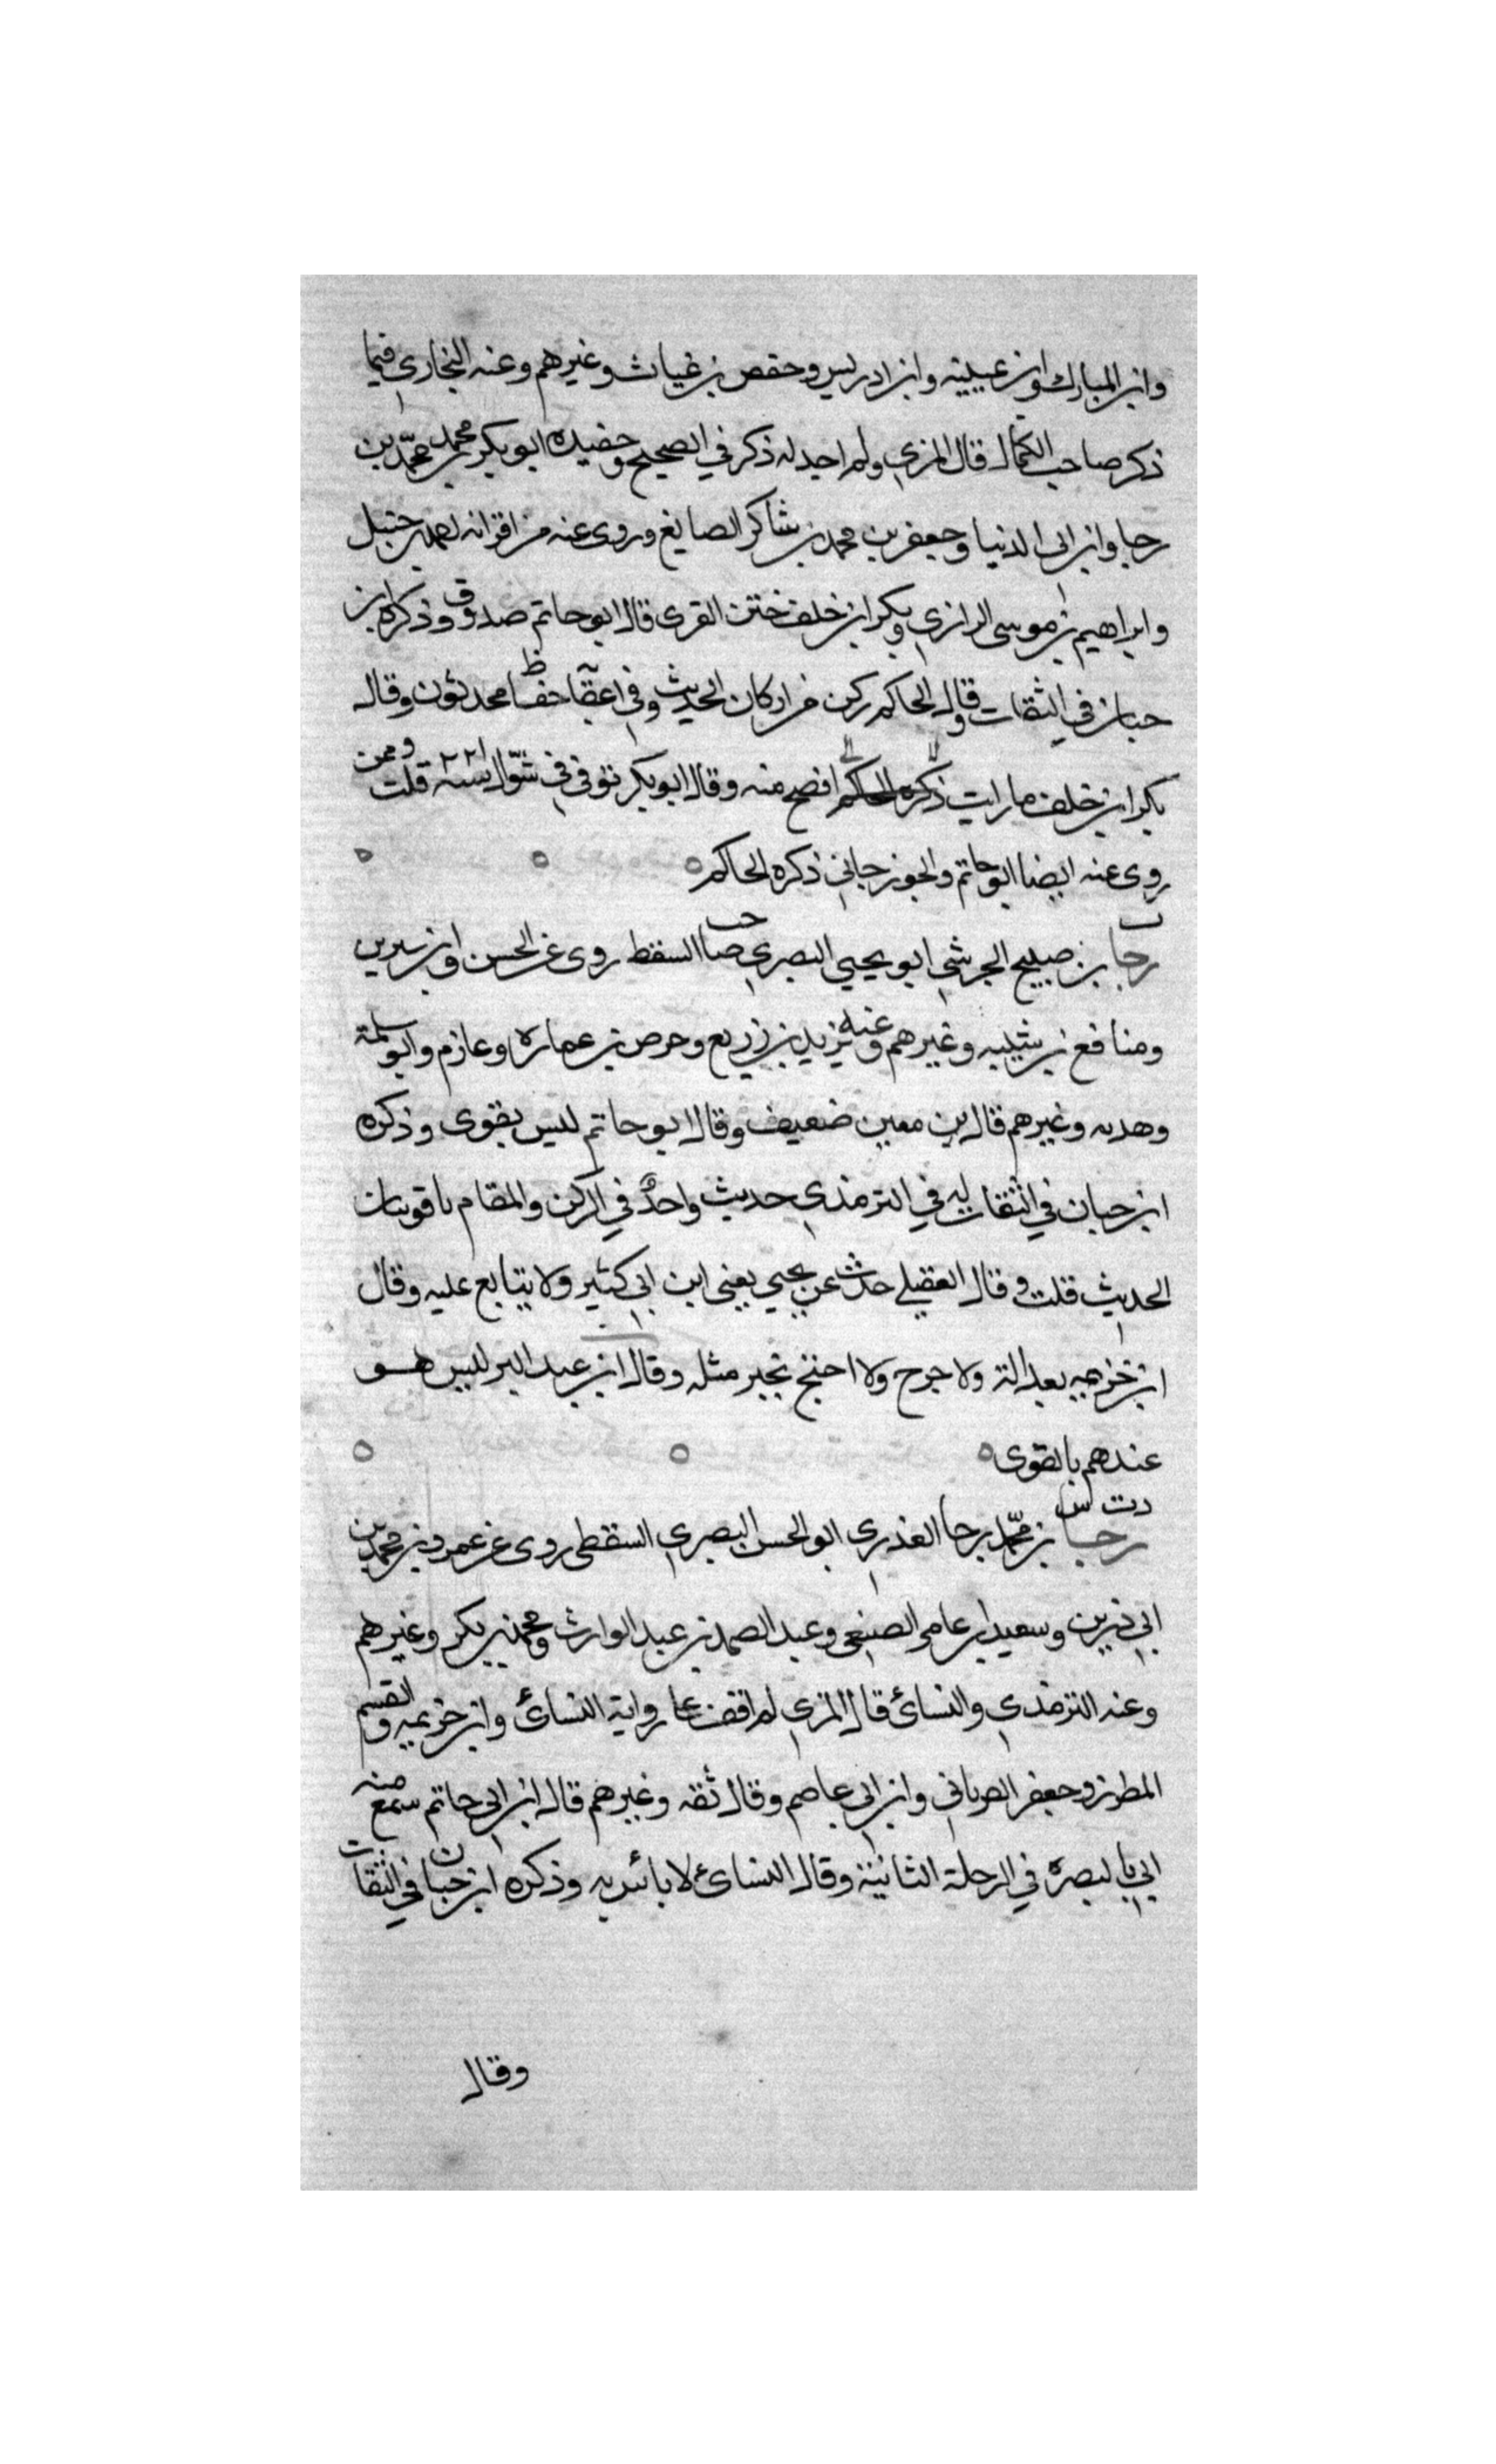 وابن المبارك وابن عيينه وابن ادريس وحفص بن غياث وغيرهم وعنه البخاري فيما
ذكر صاحب الكمال قال المزي ولم اجد له ذكر في الصحيح وحفيده ابو بكر محمد بن محمد بن
رجا وابن ابي الدنيا وجعفر بن محمد بن شاكر الصايغ وروى عنه من اقرانه احمد بن حنبل
وابراهيم بن موسى الرازي وبكر ابن خلف ختن المقرى قال ابو حاتم صدوق وذكره ابن
حبان في الثقات وقال الحاكم ركن من اركان الحديث وفي اعقابه حفاظ محدثون وقال
بكر ابن خلف ما رايت ذكره الحاكم افصح منه وقال ابو بكر توفى في شوال سنه ٢٢١ قلت وممن
روى عنه ايضا ابو حاتم والجوزجاني ذكره الحاكم
ت
رجا بن صبيح الجرشي ابو يحيي البصري صاحب السقط روى عن الحسن وابن سيرين
ومنافع بن شيبه وغيرهم وعنه يزيد بن زريع وحرص بن عماره وعازم وابو سلمة
وهدبه وغيرهم قال بن معين ضعيف وقال ابو حاتم ليس بقوى وذكره
ابن حبان في الثقات له في الترمذي حديث واحد في الركن والمقام ياقوتتان
الحديث قلت وقال العقيلي حدث عن يحيي يعني ابن ابي كثير ولا يتابع عليه وقال
ابن خزيمه بعدالته ولا جرح ولا احتج بخبر مثله وقال ابن عبد البر ليس هو
عندهم بالقوى
د ت س
رجا بن محمد بن رجا العذري ابو الحسن البصري السقطي روى عن عمرو بن محمد بن
ابي رزين وسعيد ابن عامر الضبعي وعبد الصمد بن عبد الوارث ومحمد بن بكر وغيرهم
وعنه الترمذي والنسائ قال المزي لم اقف على رواية النسائ وابن خزيمه والقسم
المطرز وجعفر الفرياني وابن ابي عاصم وقال ثقه وغيرهم قال ابن ابي حاتم سمع منه
ابي بالبصره في الرحلة الثانية وقال النسائ لا باس به وذكره ابن حبان في الثقات
وقال